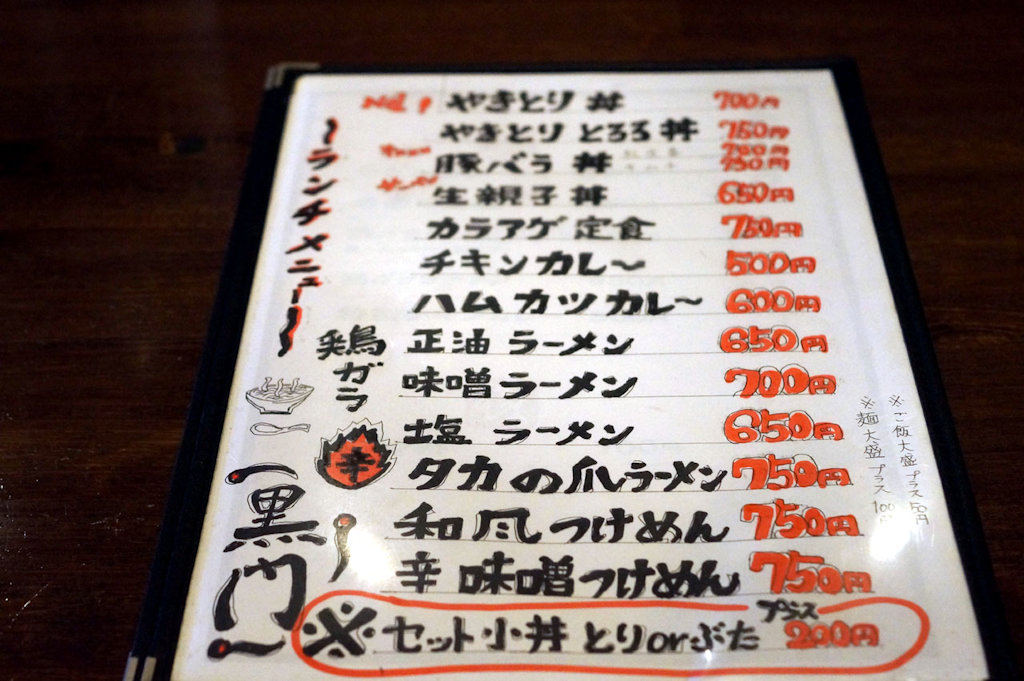 〜ランチメニュー〜
No1! やきとり丼 700円
やきとり とろろ丼 750円
豚バラ丼 700円 950円
生親子丼 650円
カラアゲ定食 750円
チキンカレ〜 500円
ハムカツカレ〜 600円
鶏ガラ
正油ラーメン 650円
味噌ラーメン 700円
塩ラーメン 650円
辛 タカの爪ラーメン 750円
和風つけめん 750円
辛味噌つけめん 750円
※セット小丼 とりorぶた プラス 200円
※ご飯大盛プラス50円
※麺大盛プラス100円
〜黒門〜